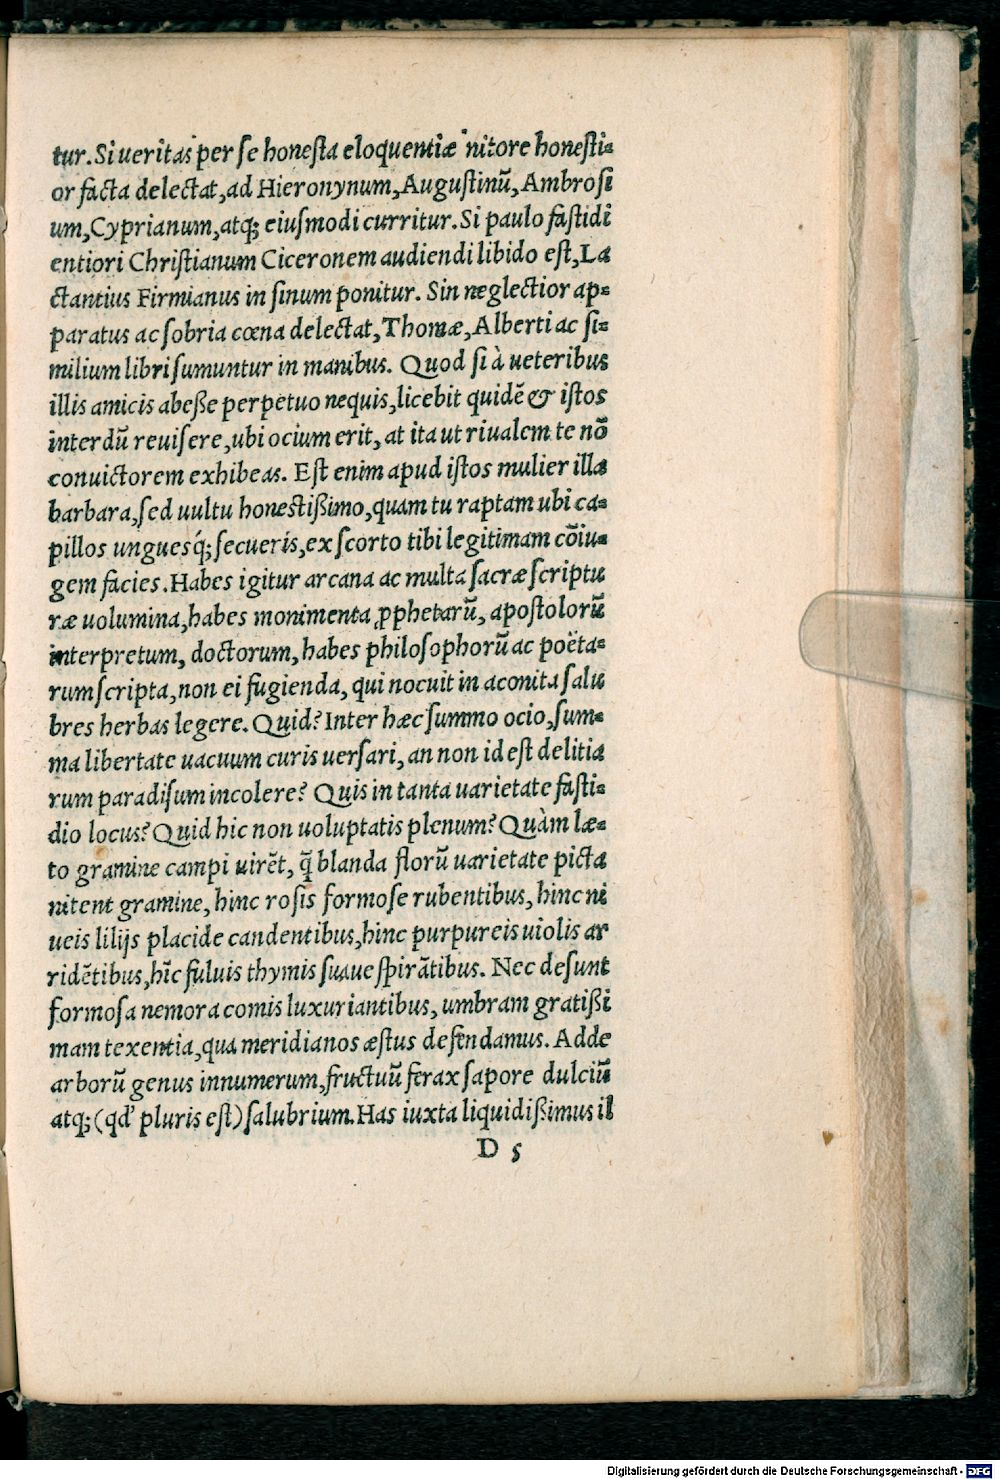 tur. Si ueritas per se honesta eloquentiæ nitore honesti=
or facta delectat, ad Hieronynum, Augustinū, Ambrosi
um, Cyprianum, atq; eiusmodi curritur. Si paulo fastidi
entiori Christianum Ciceronem audiendi libido est, La
ctantius Firmianus in sinum ponitur. Sin neglectior ap=
paratus ac sobria cœna delectat, Thomæ, Alberti ac si=
milium libri sumuntur in manibus. Quod si à ueteribus
illis amicis abeße perpetuo nequis, licebit quidē & istos
interdū reuisere, ubi ocium erit, at ita ut riualem te nō
conuictorem exhibeas. Est enim apud istos mulier illa
barbara, sed uultu honestißimo, quam tu raptam ubi ca=
pillos unguesq́; secueris, ex scorto tibi legitimam cōiu=
gem facies. Habes igitur arcana ac multa sacræ scriptu
ræ uolumina, habes monimenta ꝓphetarū, apostolorū
interpretum, doctorum, habes philosophorū ac poëta=
rum scripta, non ei fugienda, qui nocuit in aconita salu
bres herbas legere. Quid? Inter hæc summo ocio, sum=
ma libertate uacuum curis uersari, an non id est delitia
rum paradisum incolere? Quis in tanta uarietate fasti=
dio locus? Quid hic non uoluptatis plenum? Quàm læ=
to gramine campi uirēt, q̃ blanda florū uarietate picta
nitent gramine, hinc rosis formose rubentibus, hinc ni
ueis lilijs placide candentibus, hinc purpureis uiolis ar
ridētibus, hīc fuluis thymis suaue spirātibus. Nec desunt
formosa nemora comis luxuriantibus, umbram gratißi
mam texentia, qua meridianos æstus defendamus. Adde
arborū genus innumerum, fructuū ferax sapore dulciū
atq; (qd' pluris est) salubrium. Has iuxta liquidißimus il
D 5
Digitalisierung gefördert durch die Deutsche Forschungsgemeinschaft - DFG